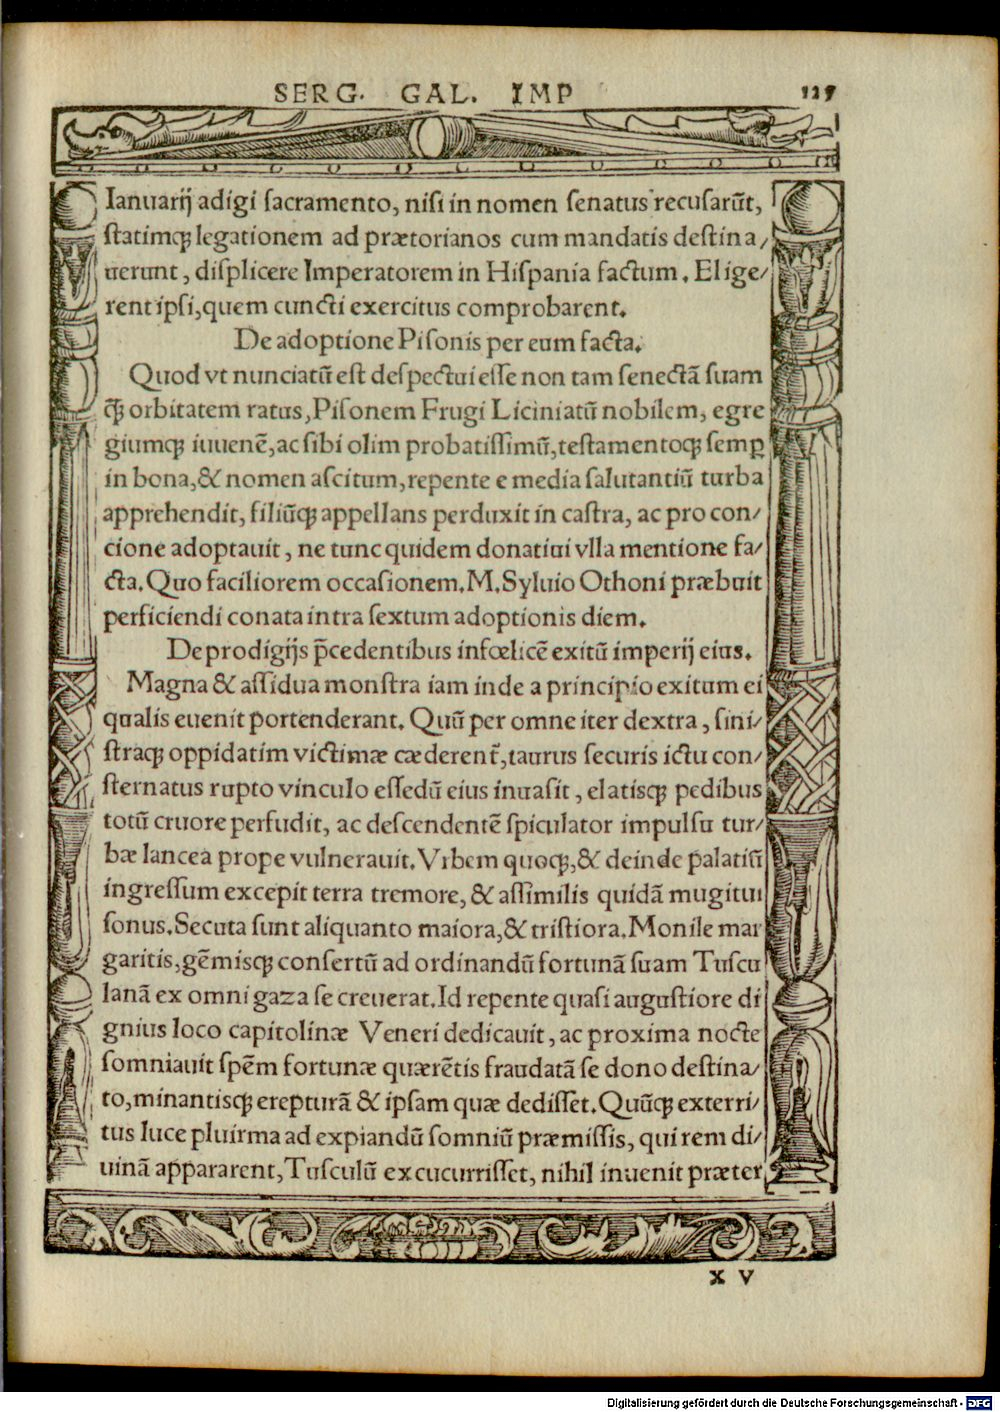 SERG. GAL. IMP 125
Ianuarij adigi sacramento, nisi in nomen senatus recusarũt,
statimq; legationem ad prætorianos cum mandatis destina/
uerunt, displicere Imperatorem in Hispania factum. Elige/
rent ipsi, quem cuncti exercitus comprobarent.
De adoptione Pisonis per eum facta.
Quod vt nunciatũ est despectui esse non tam senectã suam
q̃ orbitatem ratus, Pisonem Frugi Liciniatũ nobilem, egre
giumq; iuuenẽ, ac sibi olim probatissimũ, testamentoq; semꝑ
in bona, & nomen ascitum, repente e media salutantiũ turba
apprehendit, filiũq; appellans perduxit in castra, ac pro con/
cione adoptauit, ne tunc quidem donatiui vlla mentione fa/
cta. Quo faciliorem occasionem. M. Syluio Othoni præbuit
perficiendi conata intra sextum adoptionis diem.
De prodigijs p̃cedentibus infœlicẽ exitũ imperij eius.
Magna & assidua monstra iam inde a principio exitum ei
qualis euenit portenderant. Quũ per omne iter dextra, sini/
straq; oppidatim victimæ cæderent̃, taurus securis ictu con/
sternatus rupto vinculo essedũ eius inuasit, elatisq; pedibus
totũ cruore perfudit, ac descendentẽ spiculator impulsu tur/
bæ lancea prope vulnerauit. Vrbem quoq;, & deinde palatiũ
ingressum excepit terra tremore, & assimilis quidã mugitui
sonus. Secuta sunt aliquanto maiora, & tristiora. Monile mar
garitis, gẽmisq; consertũ ad ordinandũ fortunã suam Tuscu
lanã ex omni gaza se creuerat. Id repente quasi augustiore di
gnius loco capitolinæ Veneri dedicauit, ac proxima nocte
somniauit spẽm fortunæ quærẽtis fraudatã se dono destina/
to, minantisq; erepturã & ipsam quæ dedisset. Quũq; exterri/
tus luce pluirma ad expiandũ somniũ præmissis, qui rem di/
uinã appararent, Tusculũ excucurrisset, nihil inuenit præter
X V
Digitalisierung gefördert durch die Deutsche Forschungsgemeinschaft - DFG